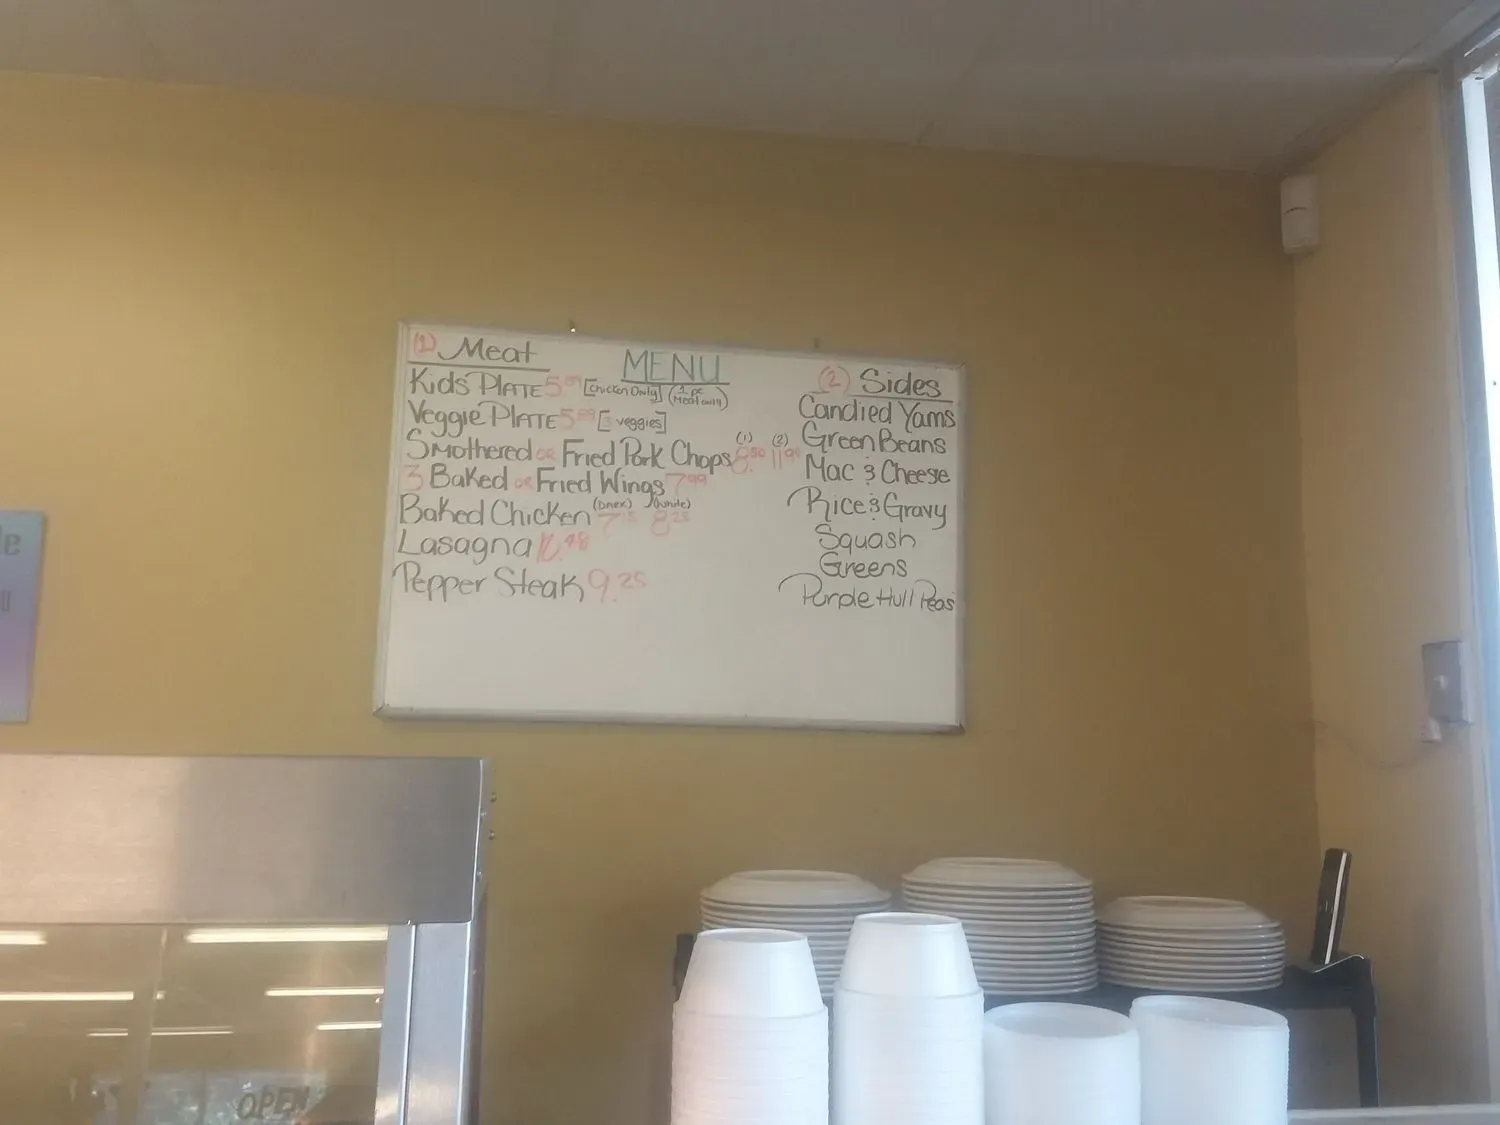 MENU
(1) Meat
Kids PLATE 5.99 [Chicken Only] (1 pc Meat only)
Veggie PLATE 5.99 [3 veggies]
Smothered OR Fried Pork Chops (1) 8.50 (2) 11.99
3 Baked OR Fried Wings 7.99
Baked Chicken (Dark) 7.75 (White) 8.25
Lasagna
Pepper Steak 9.25
(2) Sides
Candied Yams
Green Beans
Mac & Cheese
Rice & Gravy
Squash
Greens
Purple Hull Peas
OPEN